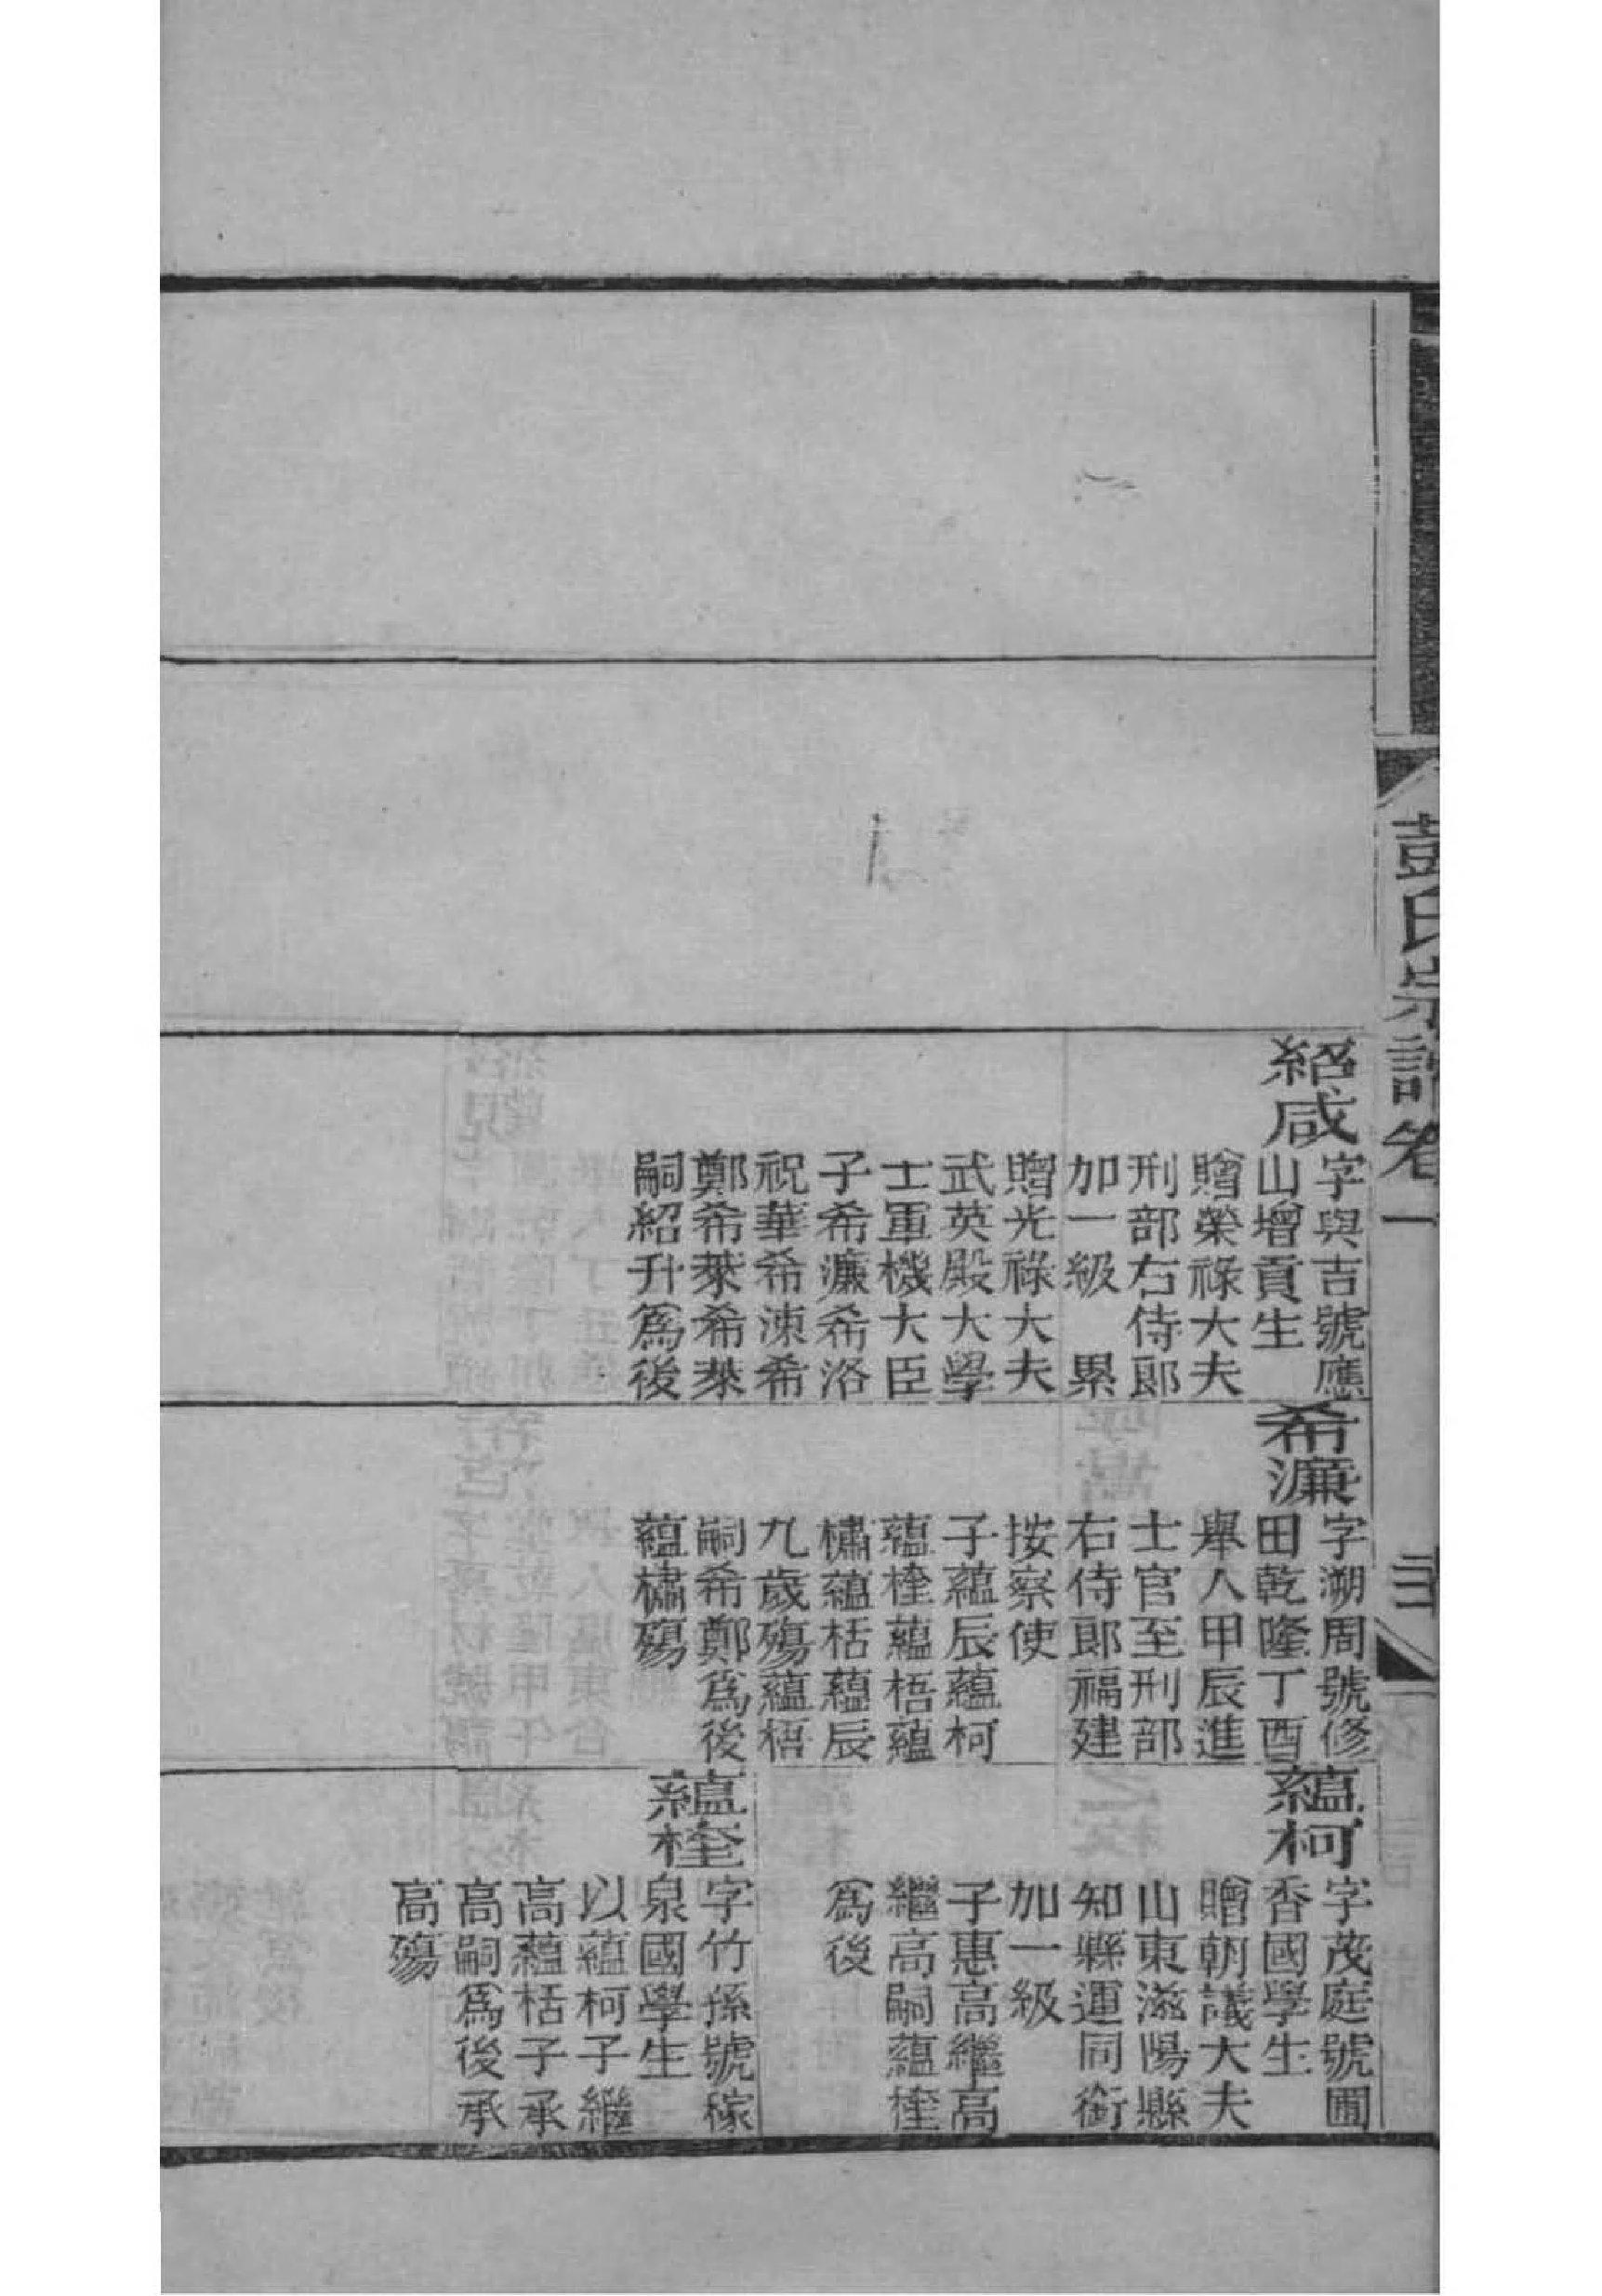 彭氏宗譜卷一
紹咸
字與吉號應
山增貢生
贈榮祿大夫
刑部右侍郎
加一級　累
贈光祿大夫
武英殿大學
士軍機大臣
子希濂希洛
祝華希涑希
鄭希萊希棻
嗣紹升爲後
希濂
字溯周號修
田乾隆丁酉
舉人甲辰進
士官至刑部
右侍郎福建
按察使
子蘊辰蘊柯
蘊楏蘊梧蘊
橚蘊栝蘊辰
九歲殤蘊梧
嗣希鄭爲後
蘊橚殤
蘊柯
字茂庭號圃
香國學生
贈朝議大夫
山東滋陽縣
知縣運同銜
加一級
子惠高繼高
繼高嗣蘊楏
爲後
蘊楏
字竹孫號稼
泉國學生
以蘊柯子繼
高蘊栝子承
高嗣爲後承
高殤